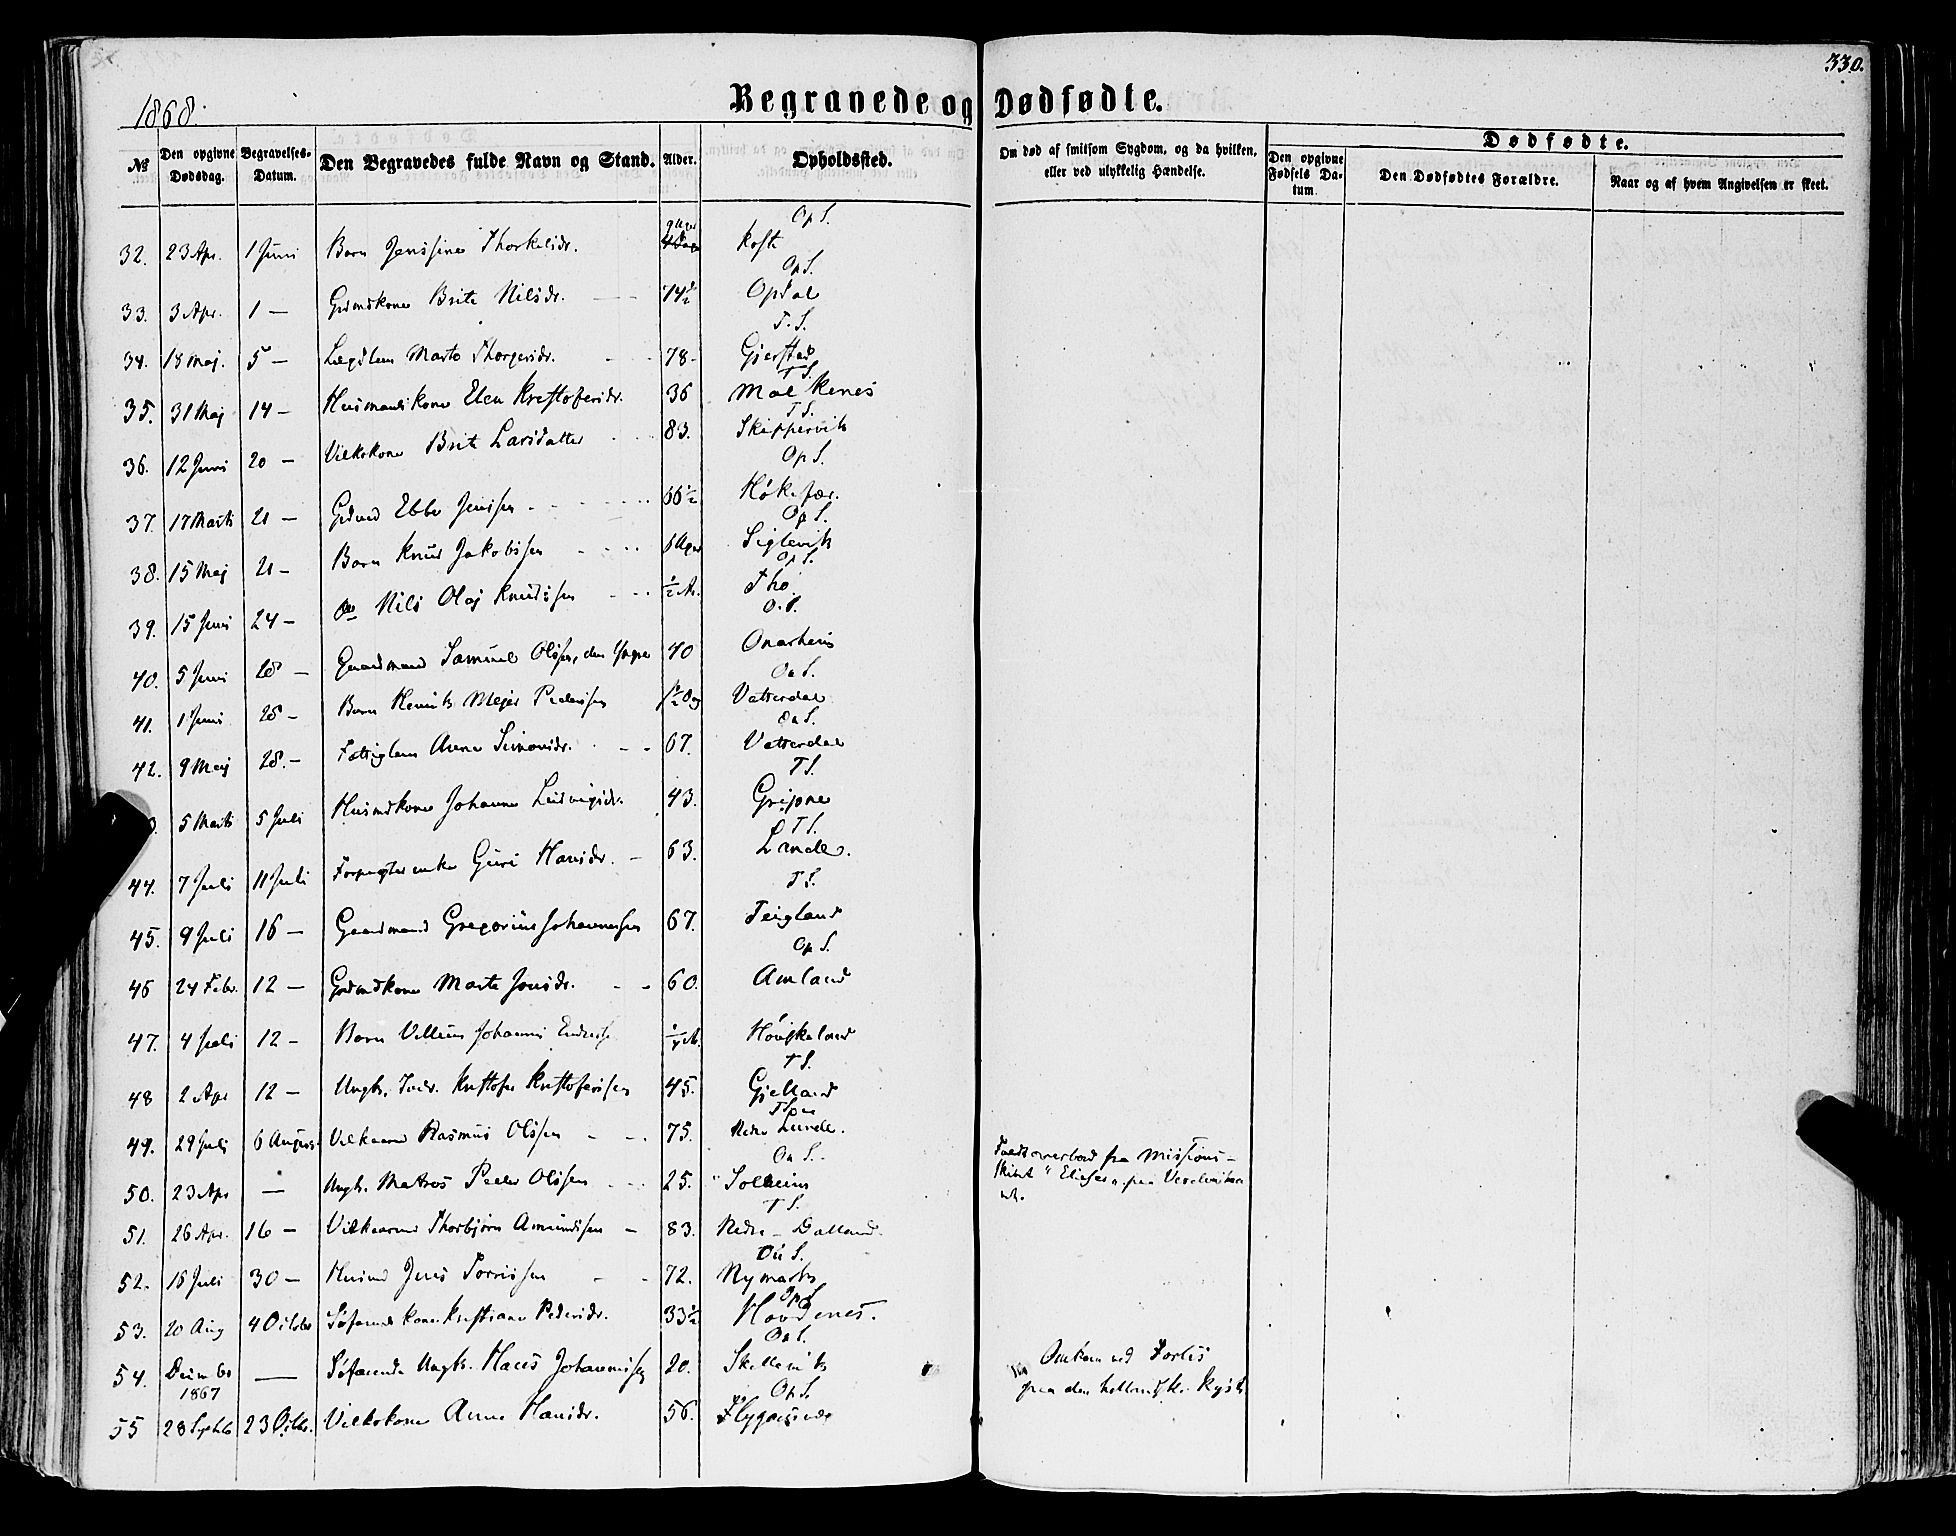 330.
1868.
Begravede og Dødfødte.
№
Den opgivne Dødsdag.
Begravelses-Datum.
Den Begravedes fulde Navn og Stand.
Alder.
Opholdssted.
Om død af smitsom Sygdom, og da hvilken, eller ved ulykkelig Hændelse.
Dødfødte.
Den opgivne Fødsels Datum
Den Dødfødtes Forældre.
Naar og af hvem Angivelsen er skeet.
Op S.
32. 23 Apr. 1 Juni Barn Jenssine Thorkelsdr.
Op S.
33. 3 Apr. 1 — Grdmdkone Brite Nilsdr. 74½ Opdal
T. S.
34. 18 Maj. 5 — Lægdslem Marta Thorgersdr. 78 Gjerstad
T S.
35. 31 Maj 14 — Husmandskone Elen Kristofersdr. 36 Malkenes
T S.
36. 12 Juni 20 — Vilkskone Brite Larsdatter 83. Skippervik
Op S.
37. 17 Marts 21 — Grdmd Ebbe Jenssen 66½
Op S.
38. 15 Maj 21 — Barn Knud Jakobssen 6 Uger Siglevik
Op S.
39. 15 Juni 24 — do Nils Olaj Knudssen ½ A. Thø
O. S.
40. 5 Juni 28 — Gaardmand Samuel Olssen, den Yngre 40 Onarheim
On S.
41. 1 Juni 28 — Barn Henrik Mejer Pedersen Vatterdal
On S.
42. 9 Maj 28. — Fattiglem Anna Simonsdr. 67. Vatterdal
T S.
5 Marts 5 Juli Husmdkone Johanne Ludvigsdr. 43. Gripne
T S.
44. 7 Juli 11 Juli Forpagter enke Guri Hansdr. — 63. Lande.
T S.
45. 9 Juli 16 — Gaardmand Gregorius Johannessen 67. Teigland
Op S.
46 24 Febr. 12 — Grdmdkone Marta Jonsdr. 60. Amland
47. 4 Juli 12 — Barn Villum Johannes ¼ A.
T S.
48 2 Apr 12 — Ungk. Inds. Kristofer Kristofersen 45. Gjelland
49. 29 Juli 6 August. Vilkaarmd Rasmus Olssen 75. Nedre Lunde.
On S.
50. 23 Apr — Ungk. Matros Peder Olssen 25. Solheim
Faldt overbord fra Missions-
skibet "Elieser"
T S.
51. 26 Apr. 16 — Vilkaarmd Thorbjørn Amundsen — 83. Nedre — Dalland
On S.
52. 16 Juli 30 — Husmd Jens 72. Nymark
Op S.
53. 20 Aug 4 Octobr Søfarends kone Kristiane Pedersdr. 33½ Hovdenes.
On S.
54. 1867 — Søfarende Ungk. Hans Johannessen 20. Skellevik
Omkom ved Forlis
paa den hollandske Kyst
Op S.
55 28 Septbr 23 Octbr. Vilkskone Anna Hansdr. 56. Flygansvær